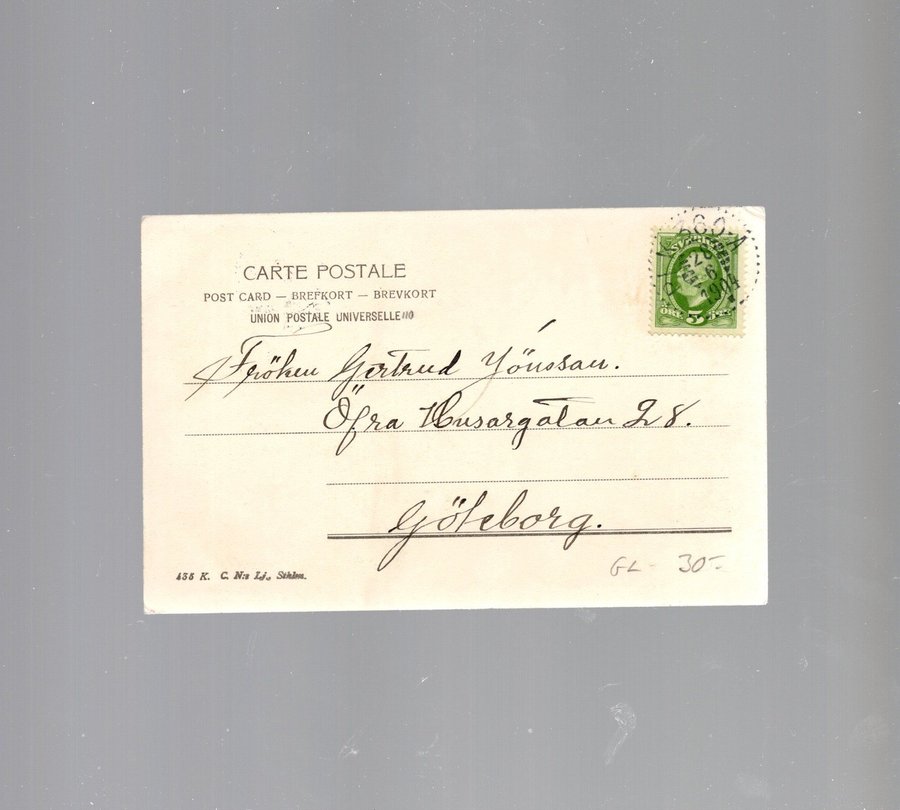 CARTE POSTALE
POST CARD — BREFKORT — BREVKORT
UNION POSTALE UNIVERSELLE
SVERIGE
1904
5
Fröken Gertrud Jönssan.
Öfra Husargatan 28.
Göteborg.
GL - 30-
435 K. C. N:s Lj., Sthlm.